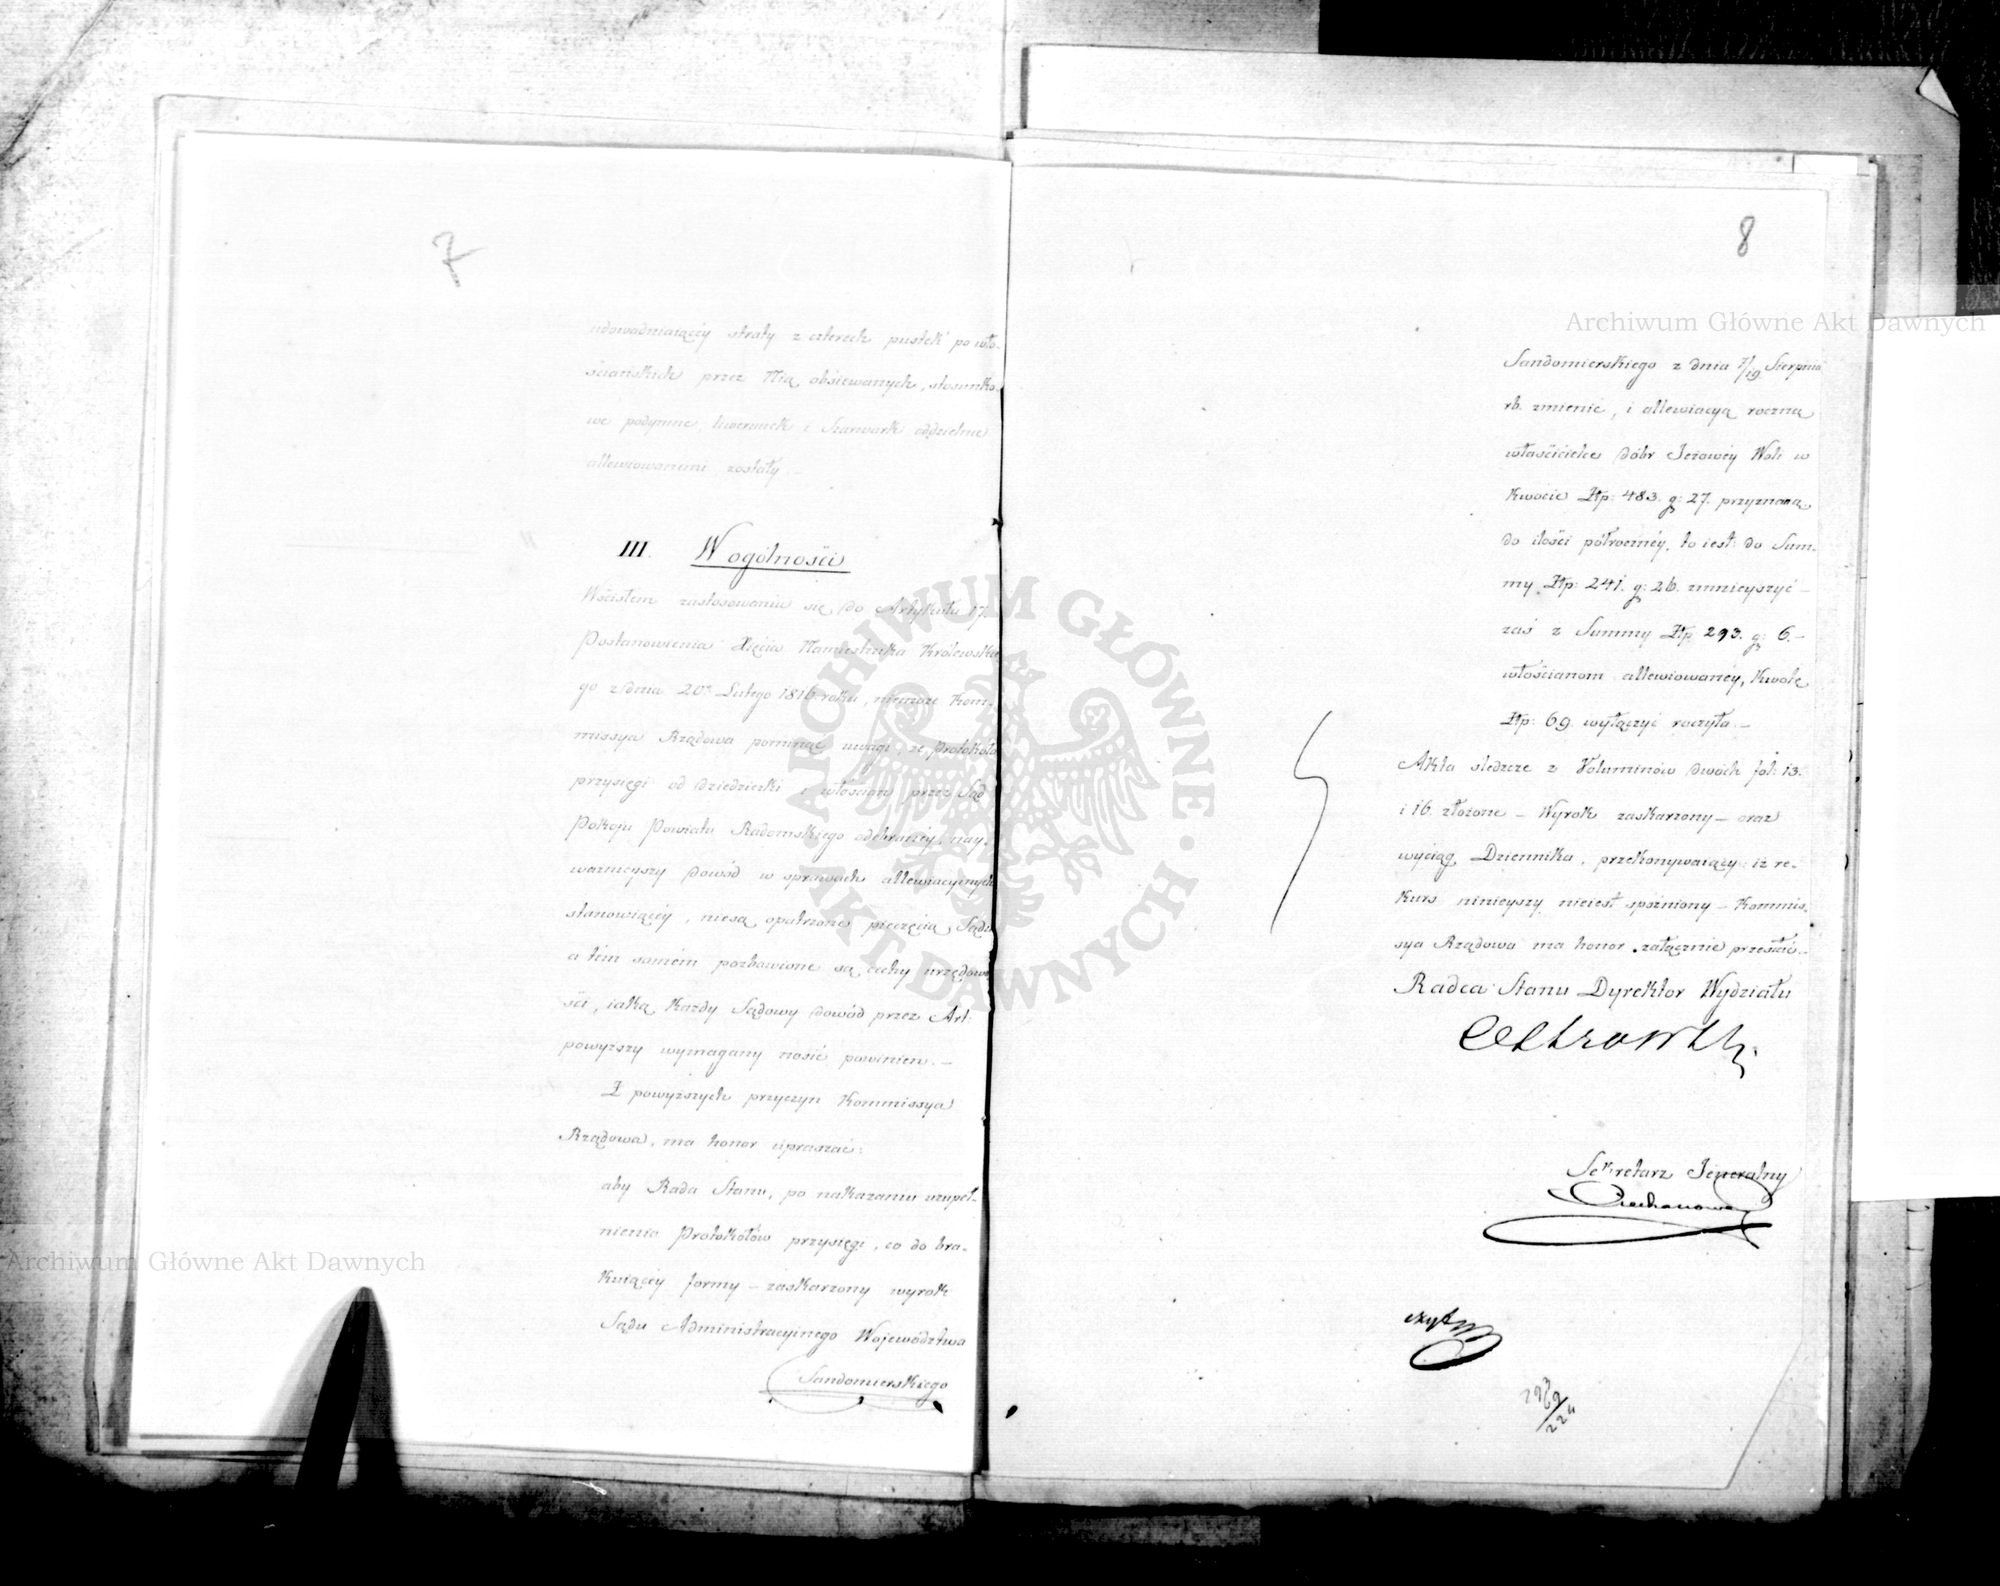 7
udowadniaiącéy straty z czterech pustek po wło-
ściańskich przez Nią obsiewanych, stosunko-
we podymne, liwerunek i Szarwark oddzielnie
allewiowanemi zostały —
III. W ogólności
W ścisłem zastosowaniu się do Artykułu 17.
Postanowienia Xięcia Namiestnika Królewskie-
go z dnia 20º Lutego 1816. roku, niemoże Kom-
missya Rządowa pominąć uwagi, że Protokóła
przysięgi od dziedziczki i włościan przez Sąd
Pokoju Powiatu Radomskiego odebranéy, nay-
ważnieyszy dowód w sprawach allewiacyinych
stanowiącéy, niesą opatrzone pieczęcią Sądu
a tém samém pozbawione są cechy urzędowo-
ści, iaką każdy Sądowy dowód przez Art:
powyższy wymagany nosić powinien. —
Z powyższych przyczyn Kommissya
Rządowa, ma honor upraszać:
aby Rada Stanu, po nakazaniu uzupeł-
nienia Protokółów przysięgi, co do bra-
kuiącéy formy — zaskarżony wyrok
Sądu Administracyinego Województwa
Sandomierskiego
8
Sandomierskiego z dnia 7/19 Sierpnia
rb. zmienić, i allewiacyą roczną
właścicielce dóbr Jeżowéy Woli w
kwocie Złp: 483. g: 27. przyznaną
do ilości półrocznéy, to iest: do Sum-
my Złp: 241. g: 28. zmnieyszyć —
zaś z Summy Złp 293. g: 6. —
włościanom allewiowanéy, kwotę
Złp: 69. wyłączyć raczyła. —
Akta śledcze z Voluminów dwóch fol: 13.
i 16. złożone — Wyrok zaskarżony — oraz
wyciąg Dziennika, przekonywaiący: iż re-
kurs ninieyszy nieiest spóźniony — Kommis-
sya Rządowa ma honor załącznie przesłać. —
Radca Stanu Dyrektor Wydziału
Sekretarz Jeneralny
293
69
224
Archiwum Główne Akt Dawnych
Archiwum Główne Akt Dawnych
ARCHIWUM GŁÓWNE · AKT DAWNYCH ·